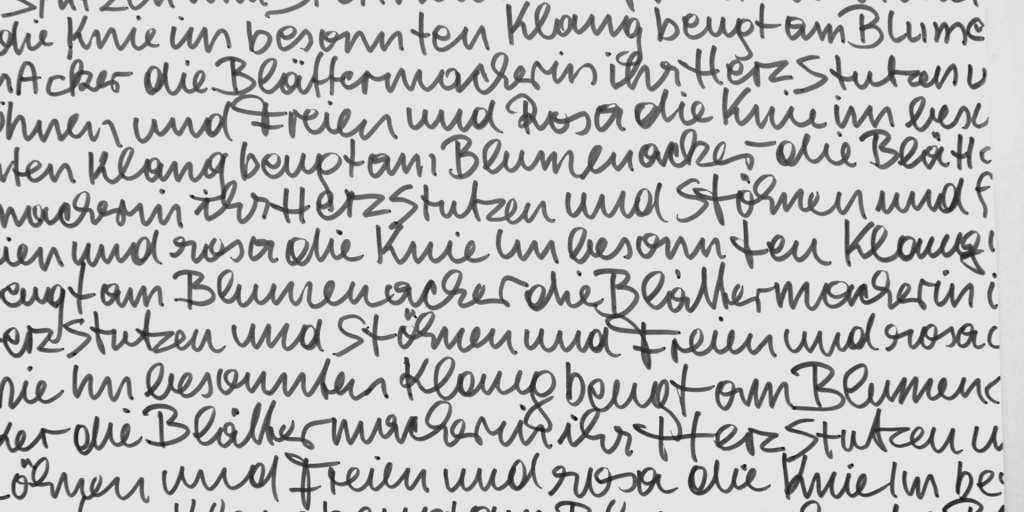 die Knie im besonnten Klang beugt am Blume
nAcker die Blättermacherin ihr Herz Stutzen u
öhnen und Freien und Rosa die Knie im bes
nten Klang beugt am Blumenacker die Blätt
macherin ihr Herz Stutzen und Stöhnen und F
ien und rosa die Knie Im besonn ten Klang
eugt am Blumenacher die Blättermacherin i
erz Stutzen und Stöhnen und Freien und rosa
nie Im besonnten Klang beugt am Blumen
ker die Blättermacherin ihr Herz Stutzen u
öhnen und Freien und rosa die Knie Im be